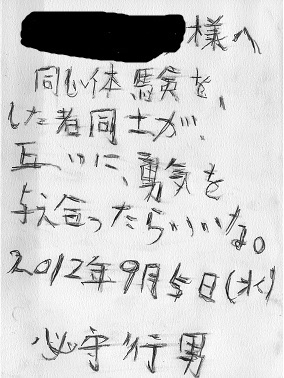 様へ
同じ体験を、
した者同士が、
互いに、勇気を
与え合ったらいいな。
2012年9月5日(水)
必守行男